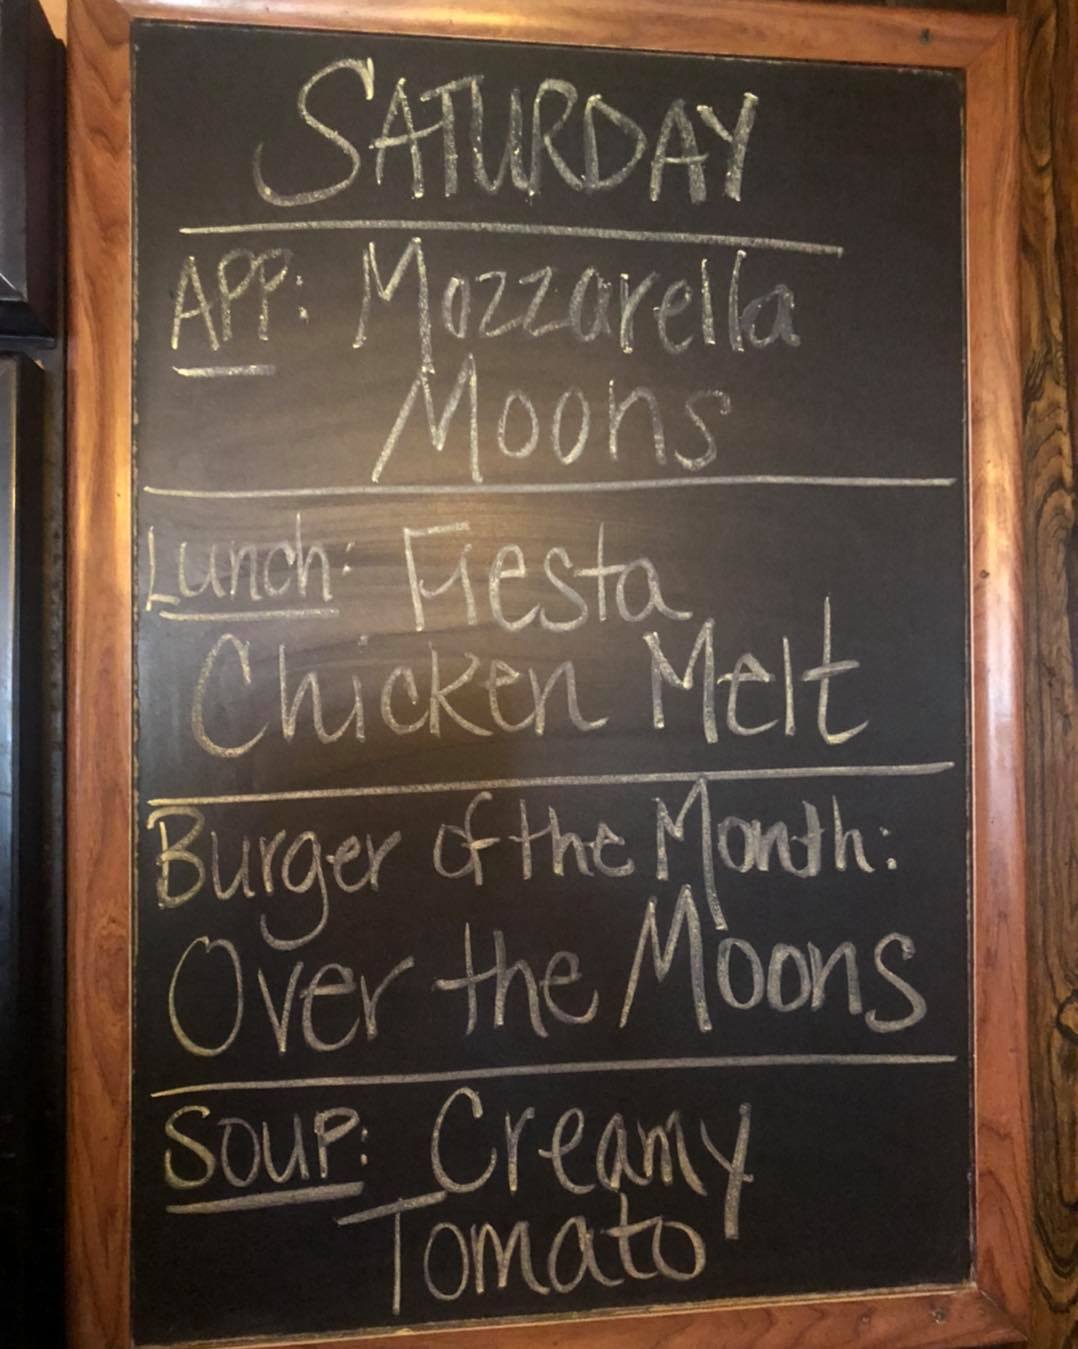 SATURDAY
APP: Mozzarella
Moons
Lunch: Fiesta
Chicken Melt
Burger of the Month:
Over the Moons
SOUP: Creamy
Tomato